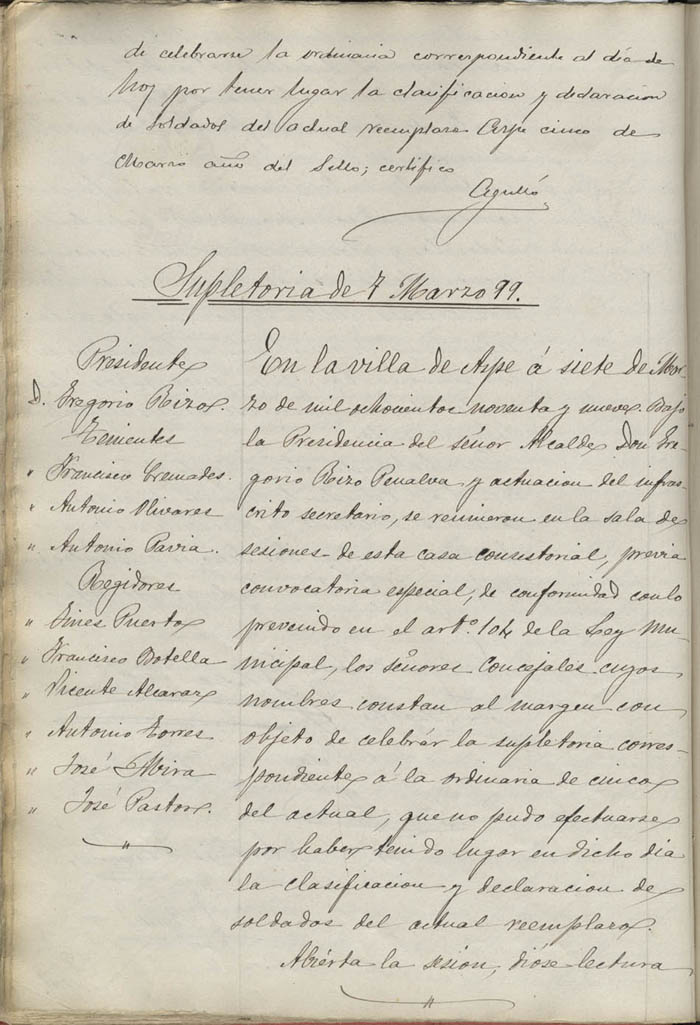 de celebrarse la ordinaria correspondiente al dia de
hoy por tener lugar la clasificacion y declaracion
de soldados del actual reemplazo Aspe cinco de
Marzo año del Sello; certifico
Agulló
Supletoria de 7 Marzo 99.
Presidente
D. Gregorio Rizo.
Tenientes
" Francisco Cremades.
" Antonio Olivares
" Antonio Pavia.
Regidores
" Gines Puerto
" Francisco Botella
" Vicente Alcaraz
" Antonio Torres
" José Mira
" José Pastor.
"
En la villa de Aspe á siete de Mar-
zo de mil ochocientos noventa y nueve. Bajo
la Presidencia del señor Alcalde Don Gre-
gorio Rizo Penalva y actuacion del infras-
crito secretario, se reunieron en la sala de
sesiones de esta casa consistorial, previa
convocatoria especial, de conformidad con lo
prevenido en el artº. 104 de la Ley Mu-
nicipal, los señores Concejales cuyos
nombres constan al margen con
objeto de celebrár la supletoria corres-
pondiente á la ordinaria de cinco
del actual, que no pudo efectuarse
por haber tenido lugar en dicho dia
la clasificacion y declaracion de
soldados del actual reemplazo.
Abiérta la sesión, dióse lectura
"